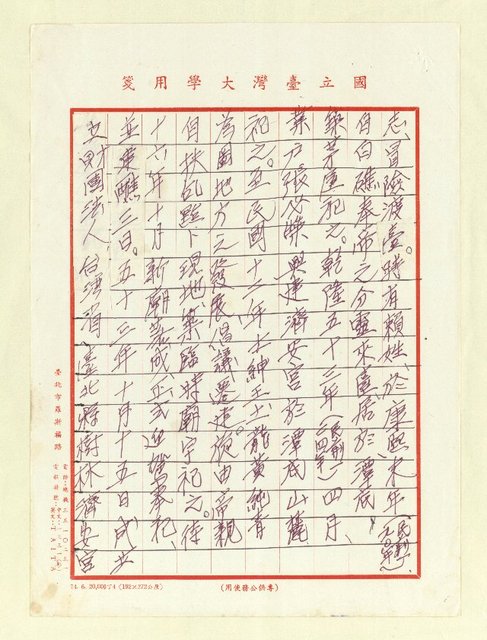 國立臺灣大學用箋
志、冒險渡臺時有賴姓、於康熙末年
自白礁奉帝之分靈來臺居於潭底
築茅屋祀之。乾隆五十三年(民前一二四年)四月、
業戶張必榮興建濟安宮於潭底山麓
祀之。至民國十二年士紳王土龍黃純青
為圖地方之發展倡議遷建旋由帝親
自扶乩點卜現地築臨時廟宇祀之。待
十六年十月新廟落成正式迎鑾奉祀、
並建醮三日。五十三年十月十五日成立
財團法人台灣省臺北縣樹林濟安宮
臺北市羅斯福路
74.6.20,000寸4 (192×272公厘)
(專供公務使用)